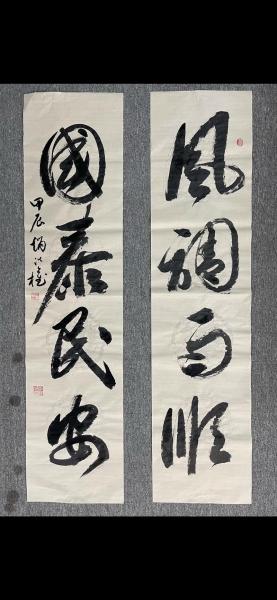 風調雨順
國泰民安
甲辰